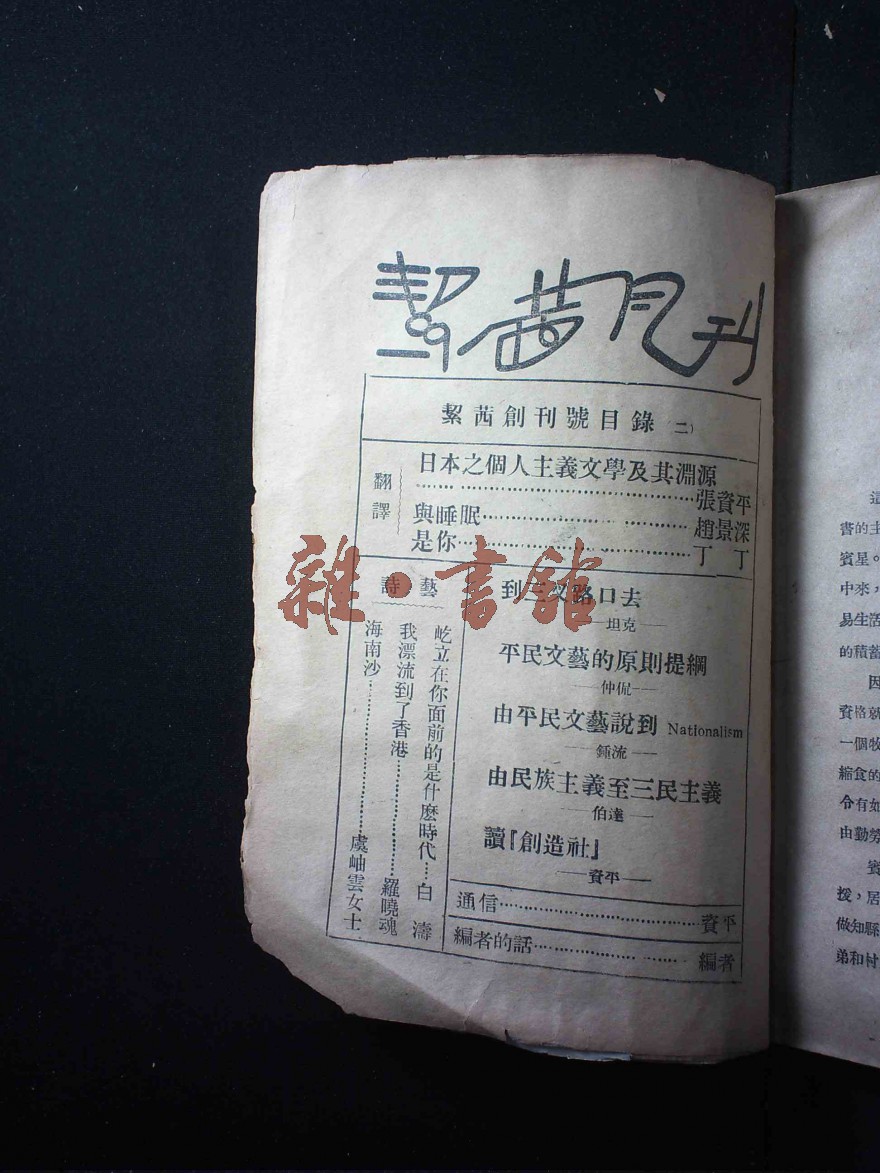 絜茜月刊
絜茜創刊號目錄(二)
翻譯
日本之個人主義文學及其淵源
………張資平
與睡眠………趙景深
是你………丁丁
到三叉路口去
——坦克——
平民文藝的原則提綱
——仲侃——
由平民文藝說到 Nationalism
——鍾流——
由民族主義至三民主義
——伯達——
讀『創造社』
——資平——
詩藝
屹立在你面前的是什麼時代……白濤
我漂流到了香港………羅曉魂
海南沙………虞岫雲女士
通信………資平
編者的話………編者
雜·書館
書的主
賓星。
中來,
易生活
的積蓄
因
資格就
一個牧
縮食的
令有如
由勤勞
賓
援,居
做知縣
弟和村